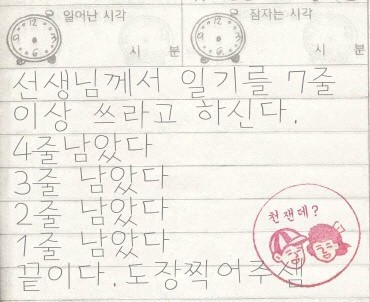 일어난 시각 잠자는 시각
시 분 시 분
선생님께서 일기를 7줄
이상 쓰라고 하신다.
4줄남았다
3줄 남았다
2줄 남았다
1줄 남았다
끝이다. 도장찍어주셈
천잰데?